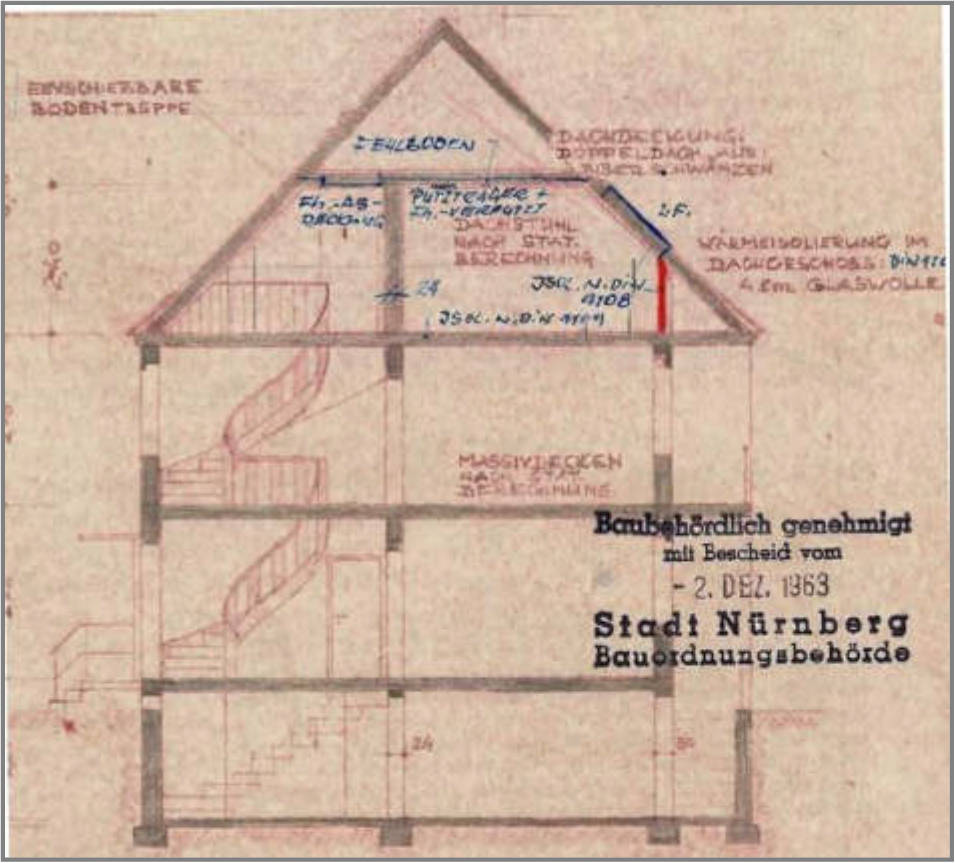 EINSCHIEBBARE
BODENTREPPE
FEHLBODEN
DACHDECKUNG:
DOPPELDACH AUS
BIBERSCHWÄNZEN
Fh.-AB-
DECKUNG
PUTZTRÄGER +
Fh.-VERPUTZT
DACHSTUHL
NACH STAT.
BERECHNUNG
LF.
WÄRMEISOLIERUNG IM
DACHGESCHOSS: DIN
4 cm GLASWOLLE
ISOL. N. DIN
4108
24
ISOL. N. DIN
MASSIVDECKEN
NACH STAT.
BERECHNUNG
Baubehördlich genehmigt
mit Bescheid vom
- 2. DEZ. 1963
Stadt Nürnberg
Bauordnungsbehörde
24